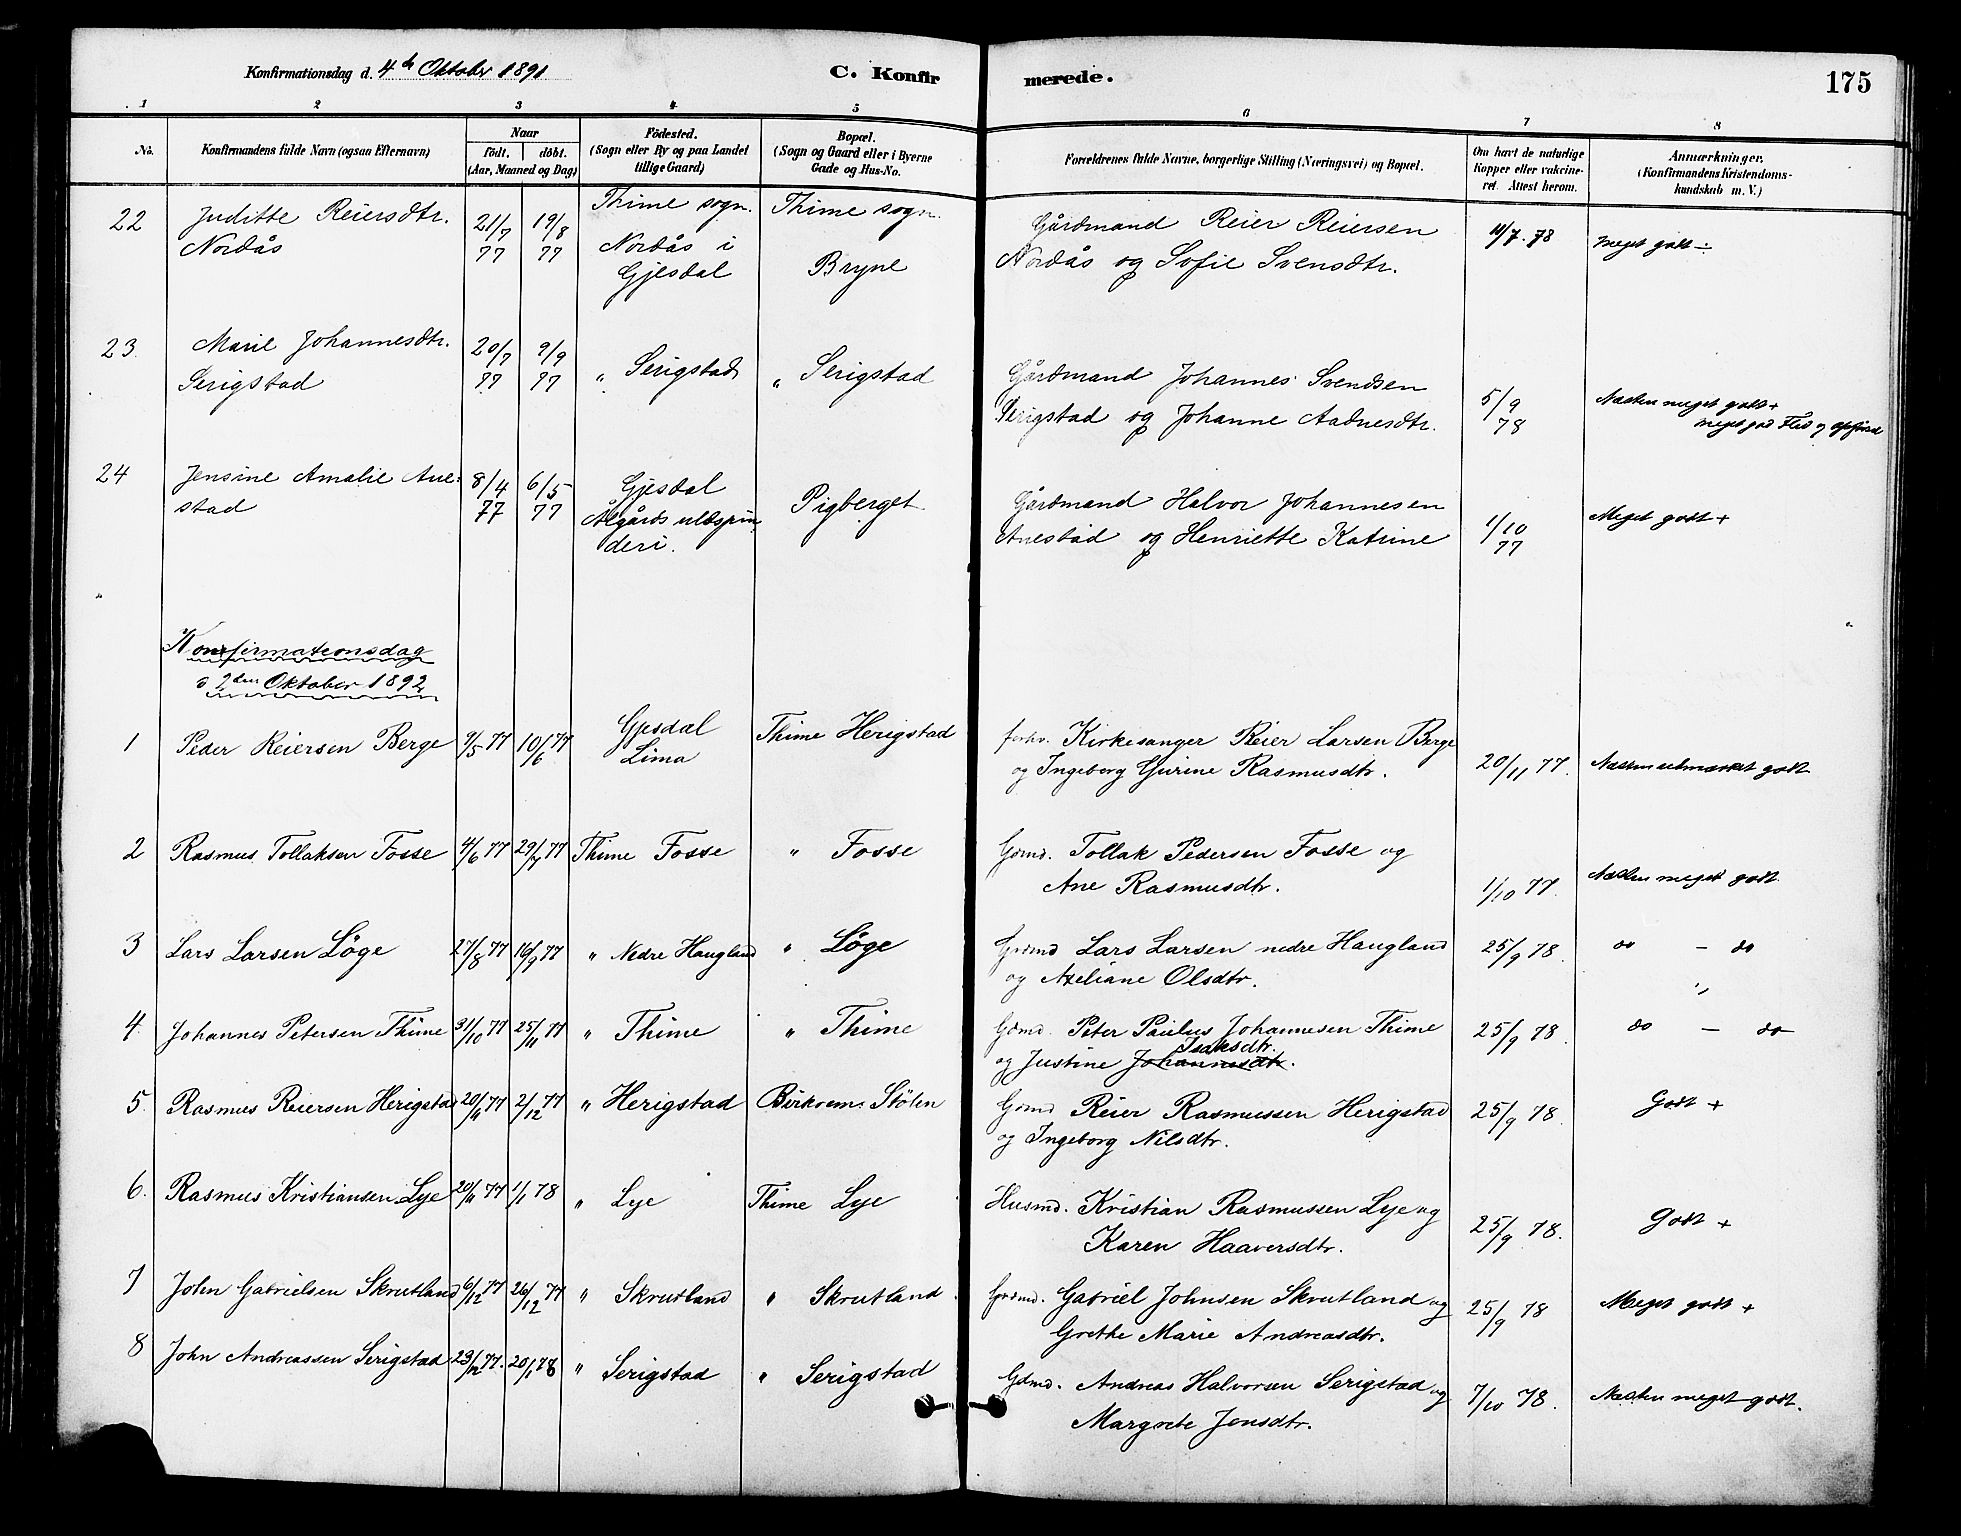 Konfirmationsdag d. 4de Oktober 1891
C. Konfirmerede.
175
1 2 3 4 5 6 7 8
No.
Konfirmandens fulde Navn (ogsaa Efternavn)
Naar
födt. döbt.
(Aar, Maaned og Dag)
Födested.
(Sogn eller By og paa Landet
tillige Gaard)
Bopæl.
(Sogn og Gaard eller i Byerne
Gade og Hus-No.
Forældrenes fulde Navne, borgerlige Stilling (Næringsvei) og Bopæl.
Om havt de naturlige
Kopper eller vakcine-
ret. Attest herom.
Anmærkninger.
(Konfirmandens Kristendoms-
kundskab m. V.)
22 Juditte Reiersdtr. 21/7 19/8 Thime sogn. Thime sogn. Gårdmand Reier Reiersen 11/7. 78 Meget godt ÷
Nordås 77 77 Nordås i Bryne Nordås og Sofie Svensdtr.
Gjesdal
23. Marie Johannesdtr. 20/7 9/9 " Serigstad " Serigstad Gårdmand Johannes Svendsen 5/9 Næsten meget godt +
Serigstad 77 77 Serigstad og Johanne Aadnesdtr. 78 meget god Flid og Opførsel
24 Jensine Amalie Ane- 8/4 6/5 Gjesdal Pigberget Gårdmand Halvor Johannesen 1/10 Meget godt +
stad 77 77 Ålgårds uldspin Anestad og Henriette Katrine 77
deri.
Konfirmationsdag
d 2den Oktober 1892
1 Peder Reiersen Berge 9/5 77 10/6 77 Gjesdal Thime Herigstad forhv. Kirkesanger Reier Larsen Berge 20/11 77. Næsten udmærket godt
Lima og Ingeborg Gurine Rasmusdtr.
2 Rasmus Tollaksen Fosse 4/6 77 29/7 77 Thime Fosse " Fosse Gdmd. Tollak Pedersen Fosse og 1/10 77. Næsten meget godt.
Ane Rasmusdtr.
3 Lars Larsen Löge 27/8 77 16/9 77 " Nedre Haugland " Löge Grdmd Lars Larsen nedre Haugland 25/9 78. do — do
og Axeliane Olsdtr.
4. Johannes Petersen Thime 31/10 77 25/11 77 " Thime " Thime Gdmd. Peter Paulus Johannesen Thime 25/9 78. do — do
Isaksdtr.
og Justine Johannesdtr.
5. Rasmus Reiersen Herigstad 20/11 77 2/12 77 " Herigstad Birkrem. Stölen Grdmd Reier Rasmussen Herigstad 25/9 78. Godt +
og Ingeborg Nilsdtr.
6. Rasmus Kristiansen Lye 20/11 77 1/1 78 " Lye Thime Lye Husmd. Kristian Rasmussen Lye og 25/9 78. Godt +
Karen Haaversdtr.
7 John Gabrielsen Skrutland 6/12 77 26/12 77 " Skrutland " Skrutland. Grdmd. Gabriel Johnsen Skrutland og 25/9 78 Meget godt +
Grethe Marie Andreasdtr.
8 John Andreassen Serigstad 23/12 77. 20/1 78 " Serigstad " Serigstad Gdmd. Andreas Halvorsen Serigstad og 7/10 78. Næsten meget godt.
Margrete Jonsdtr.